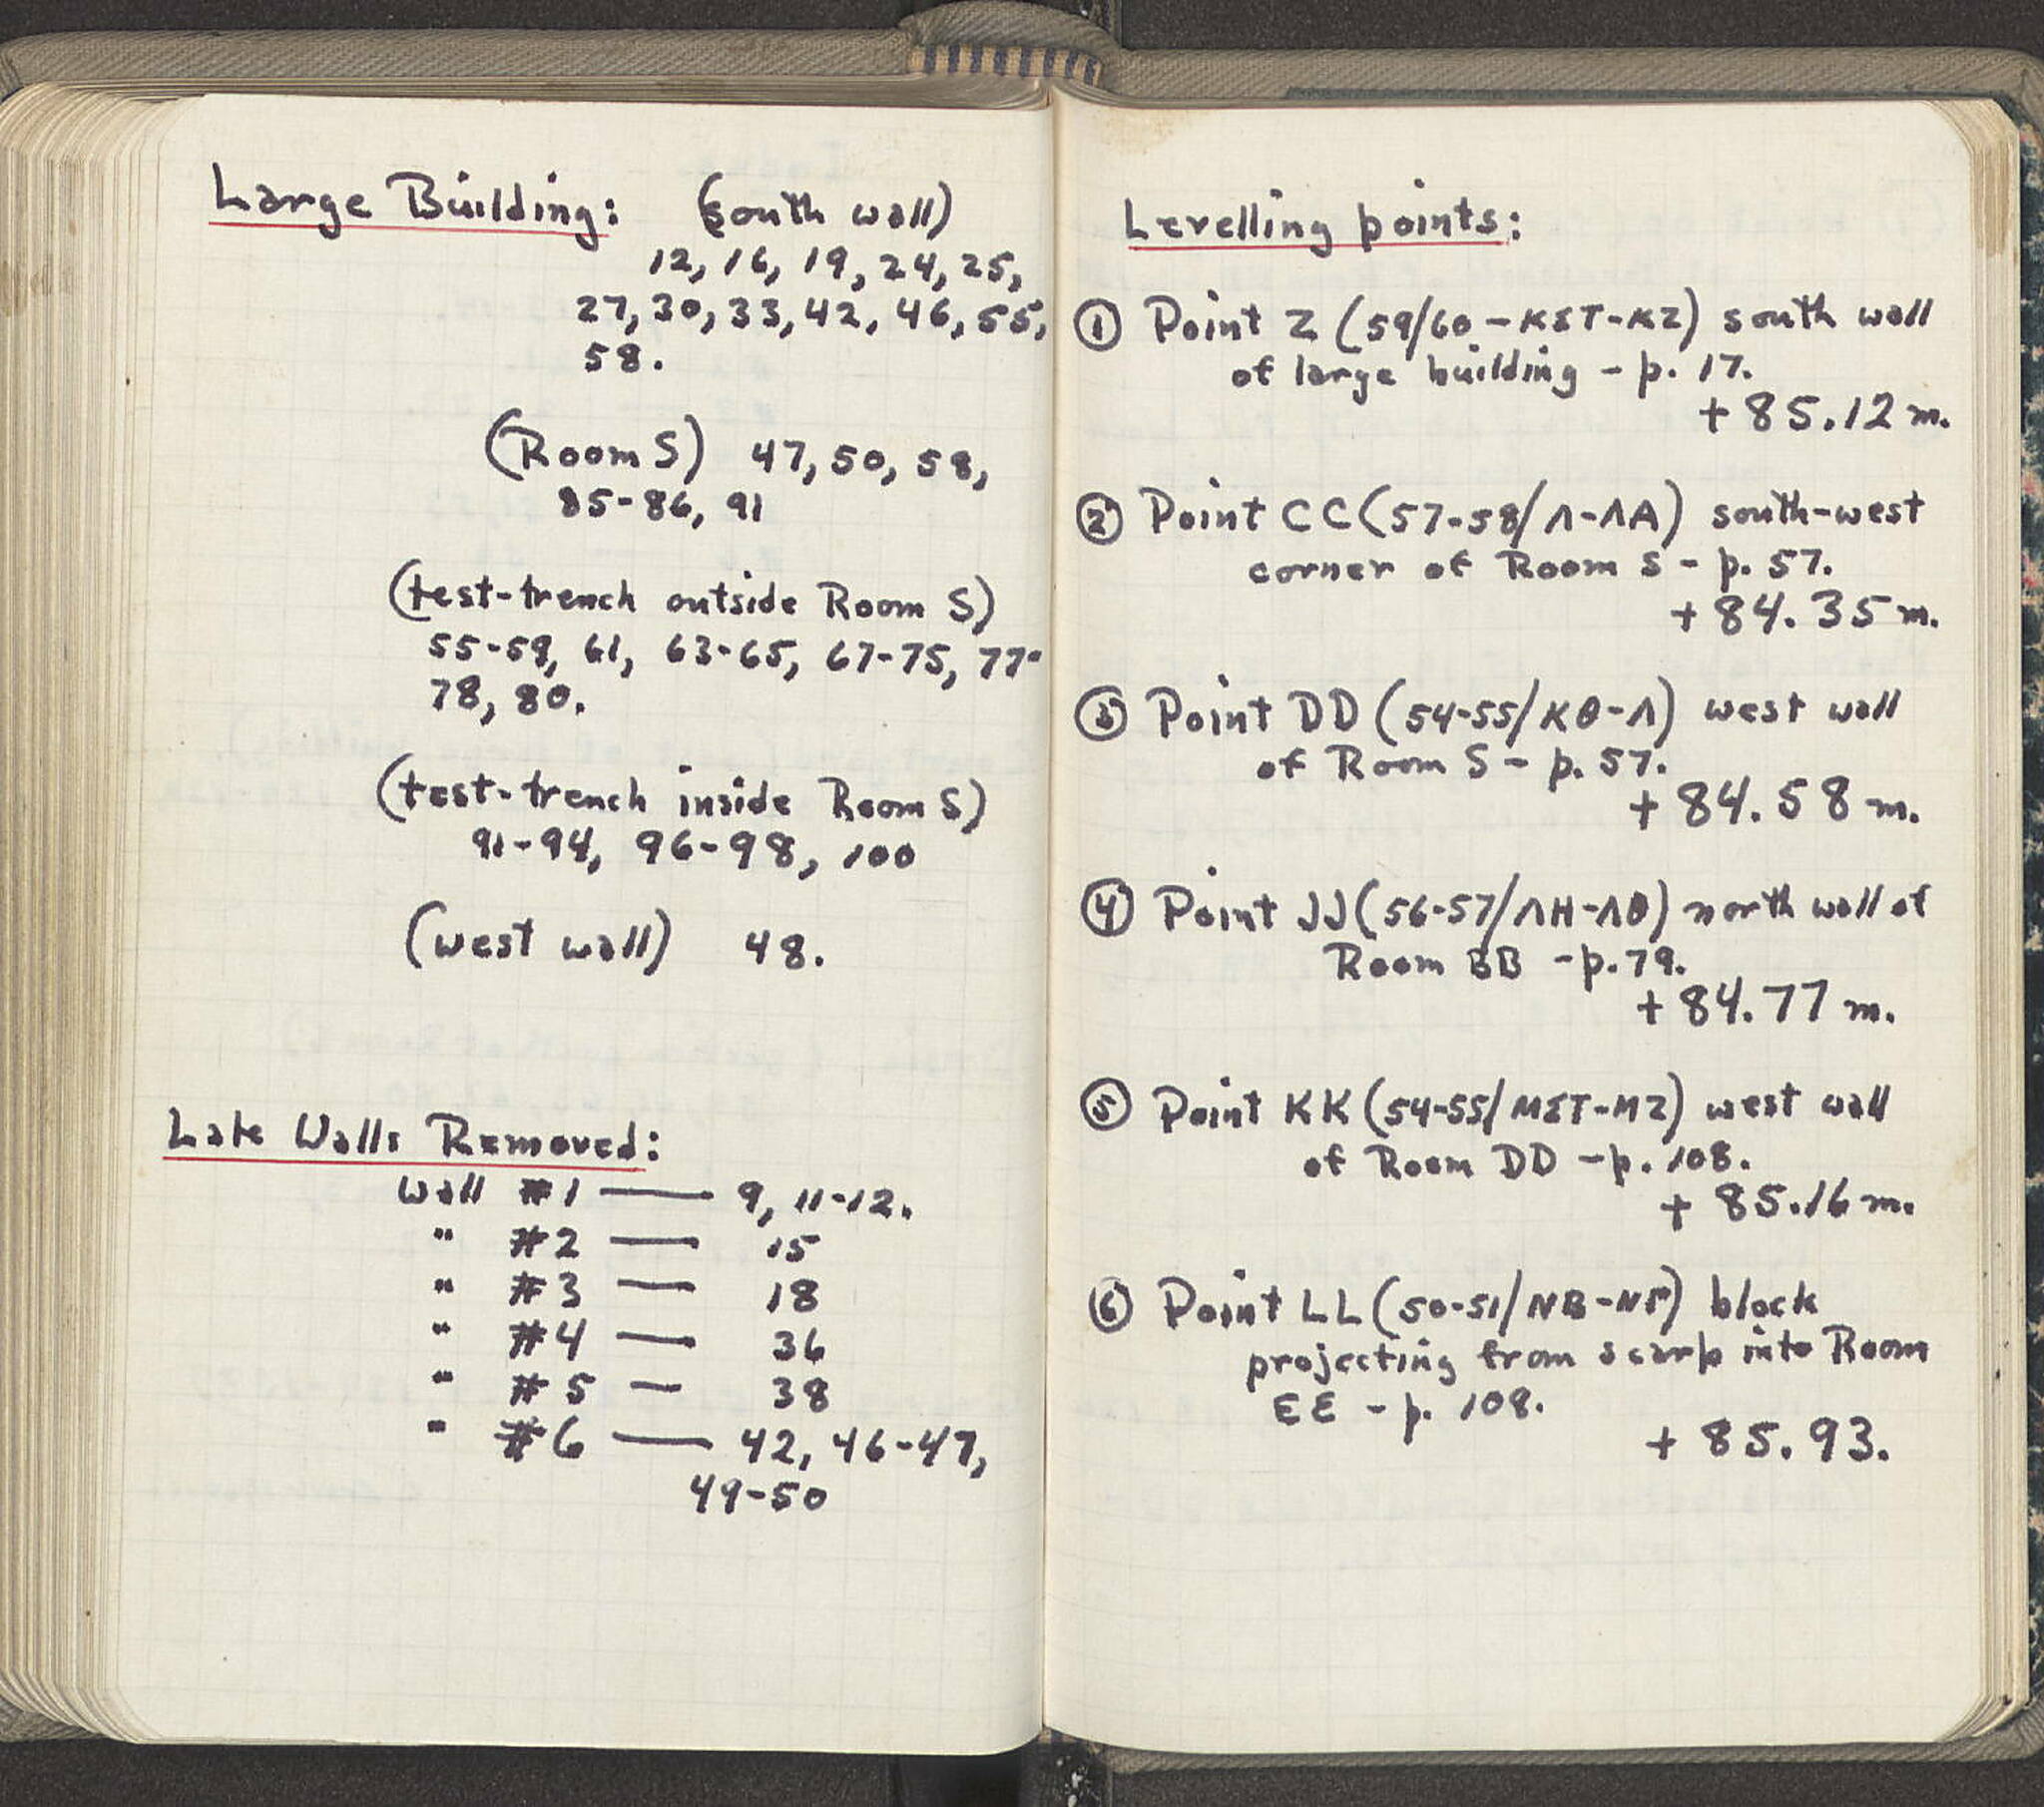 Large Building: (south wall)
12, 16, 19, 24, 25,
27, 30, 33, 42, 46, 55,
58.
(Room S) 47, 50, 58,
85-86, 91
(test-trench outside Room S)
55-59, 61, 63-65, 67-75, 77-
78, 80.
(test-trench inside Room S)
91-94, 96-98, 100
(west wall) 48.
Late Walls Removed:
Wall #1 — 9, 11-12.
" #2 — 15
" #3 — 18
" #4 — 36
" #5 — 38
" #6 — 42, 46-47,
49-50
Levelling points:
① Point Z (59/60 - ΚΣΤ-ΚΖ) south wall
of large building - p. 17.
+ 85.12 m.
② Point CC (57-58/Λ-ΛΑ) south-west
corner of Room S - p. 57.
+ 84.35 m.
③ Point DD (54-55/ΚΘ-Λ) west wall
of Room S - p. 57.
+ 84.58 m.
④ Point JJ (56-57/ΛΗ-ΛΘ) north wall of
Room BB - p. 79.
+ 84.77 m.
⑤ Point KK (54-55/ΜΣΤ-ΜΖ) west wall
of Room DD - p. 108.
+ 85.16 m.
⑥ Point LL (50-51/ΝΒ-ΝΓ) block
projecting from scarp into Room
EE - p. 108.
+ 85.93.